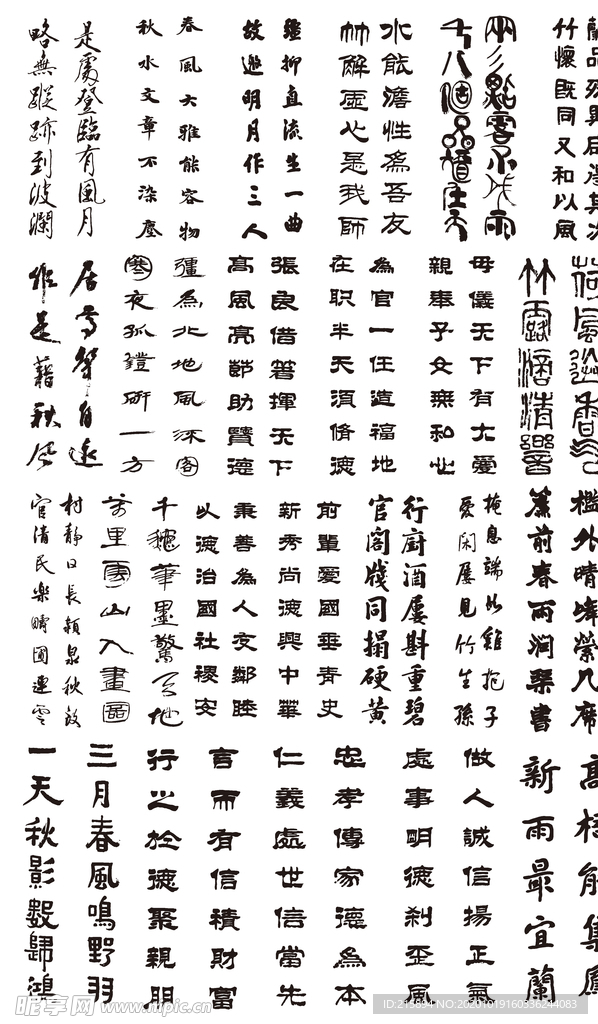 竹懷既同又和以風
水能澹性為吾友
竹解虛心是我師
強抑直流生一曲
故邀明月作三人
春風大雅能容物
秋水文章不染塵
是處登臨有風月
略無蹤跡到波瀾
荷風送香氣
竹露滴清響
母儀天下有大愛
親奉子女無私心
為官一任造福地
在职半天須脩德
張良借箸揮天下
高風亮節助賢德
疆為北地風沐客
寒夜孤鐙研一方
居高聲自遠
非是藉秋風
檻外晴峰縈几席
簾前春雨潤琴書
掩息端如雞抱子
愛閑屢見竹生孫
行廚酒屢斟重碧
官閣牋同搨硬黃
前輩愛國垂青史
新秀尚德興中華
秉善為人友鄰睦
以德治國社稷安
千龝筆墨驚天地
萬里雲山入畫圖
村靜日長頴泉秋設
官清民樂疇圃連雲
高梧能集鳳
新雨最宜蘭
做人誠信揚正氣
處事明德刹歪風
忠孝傳家德為本
仁義處世信當先
言而有信積財富
行之於德聚親朋
三月春風鳴野羽
一天秋影數歸鴻
昵享网 www.nipic.com
ID:215894 NO:20201019160336244083